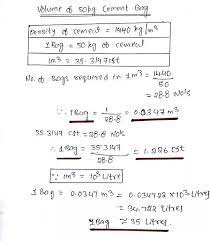 Volume of 50kg Cement Bag
Density of cement = 1440 kg/m³
1 Bag = 50 kg of cement
1m³ = 35.3147 cft
No. of Bags required in 1m³ = 1440/50
= 28.8 No's
∴ 1 Bag = 1/28.8 = 0.0347 m³
35.3147 cft = 28.8 No's
∴ 1 Bag = 35.3147/28.8 = 1.226 cft
∵ 1m³ = 10³ Litre
1 Bag = 0.0347 m³ = 0.034722 × 10³ Litres
= 34.722 Litres
1 Bag ≈ 35 Litres.